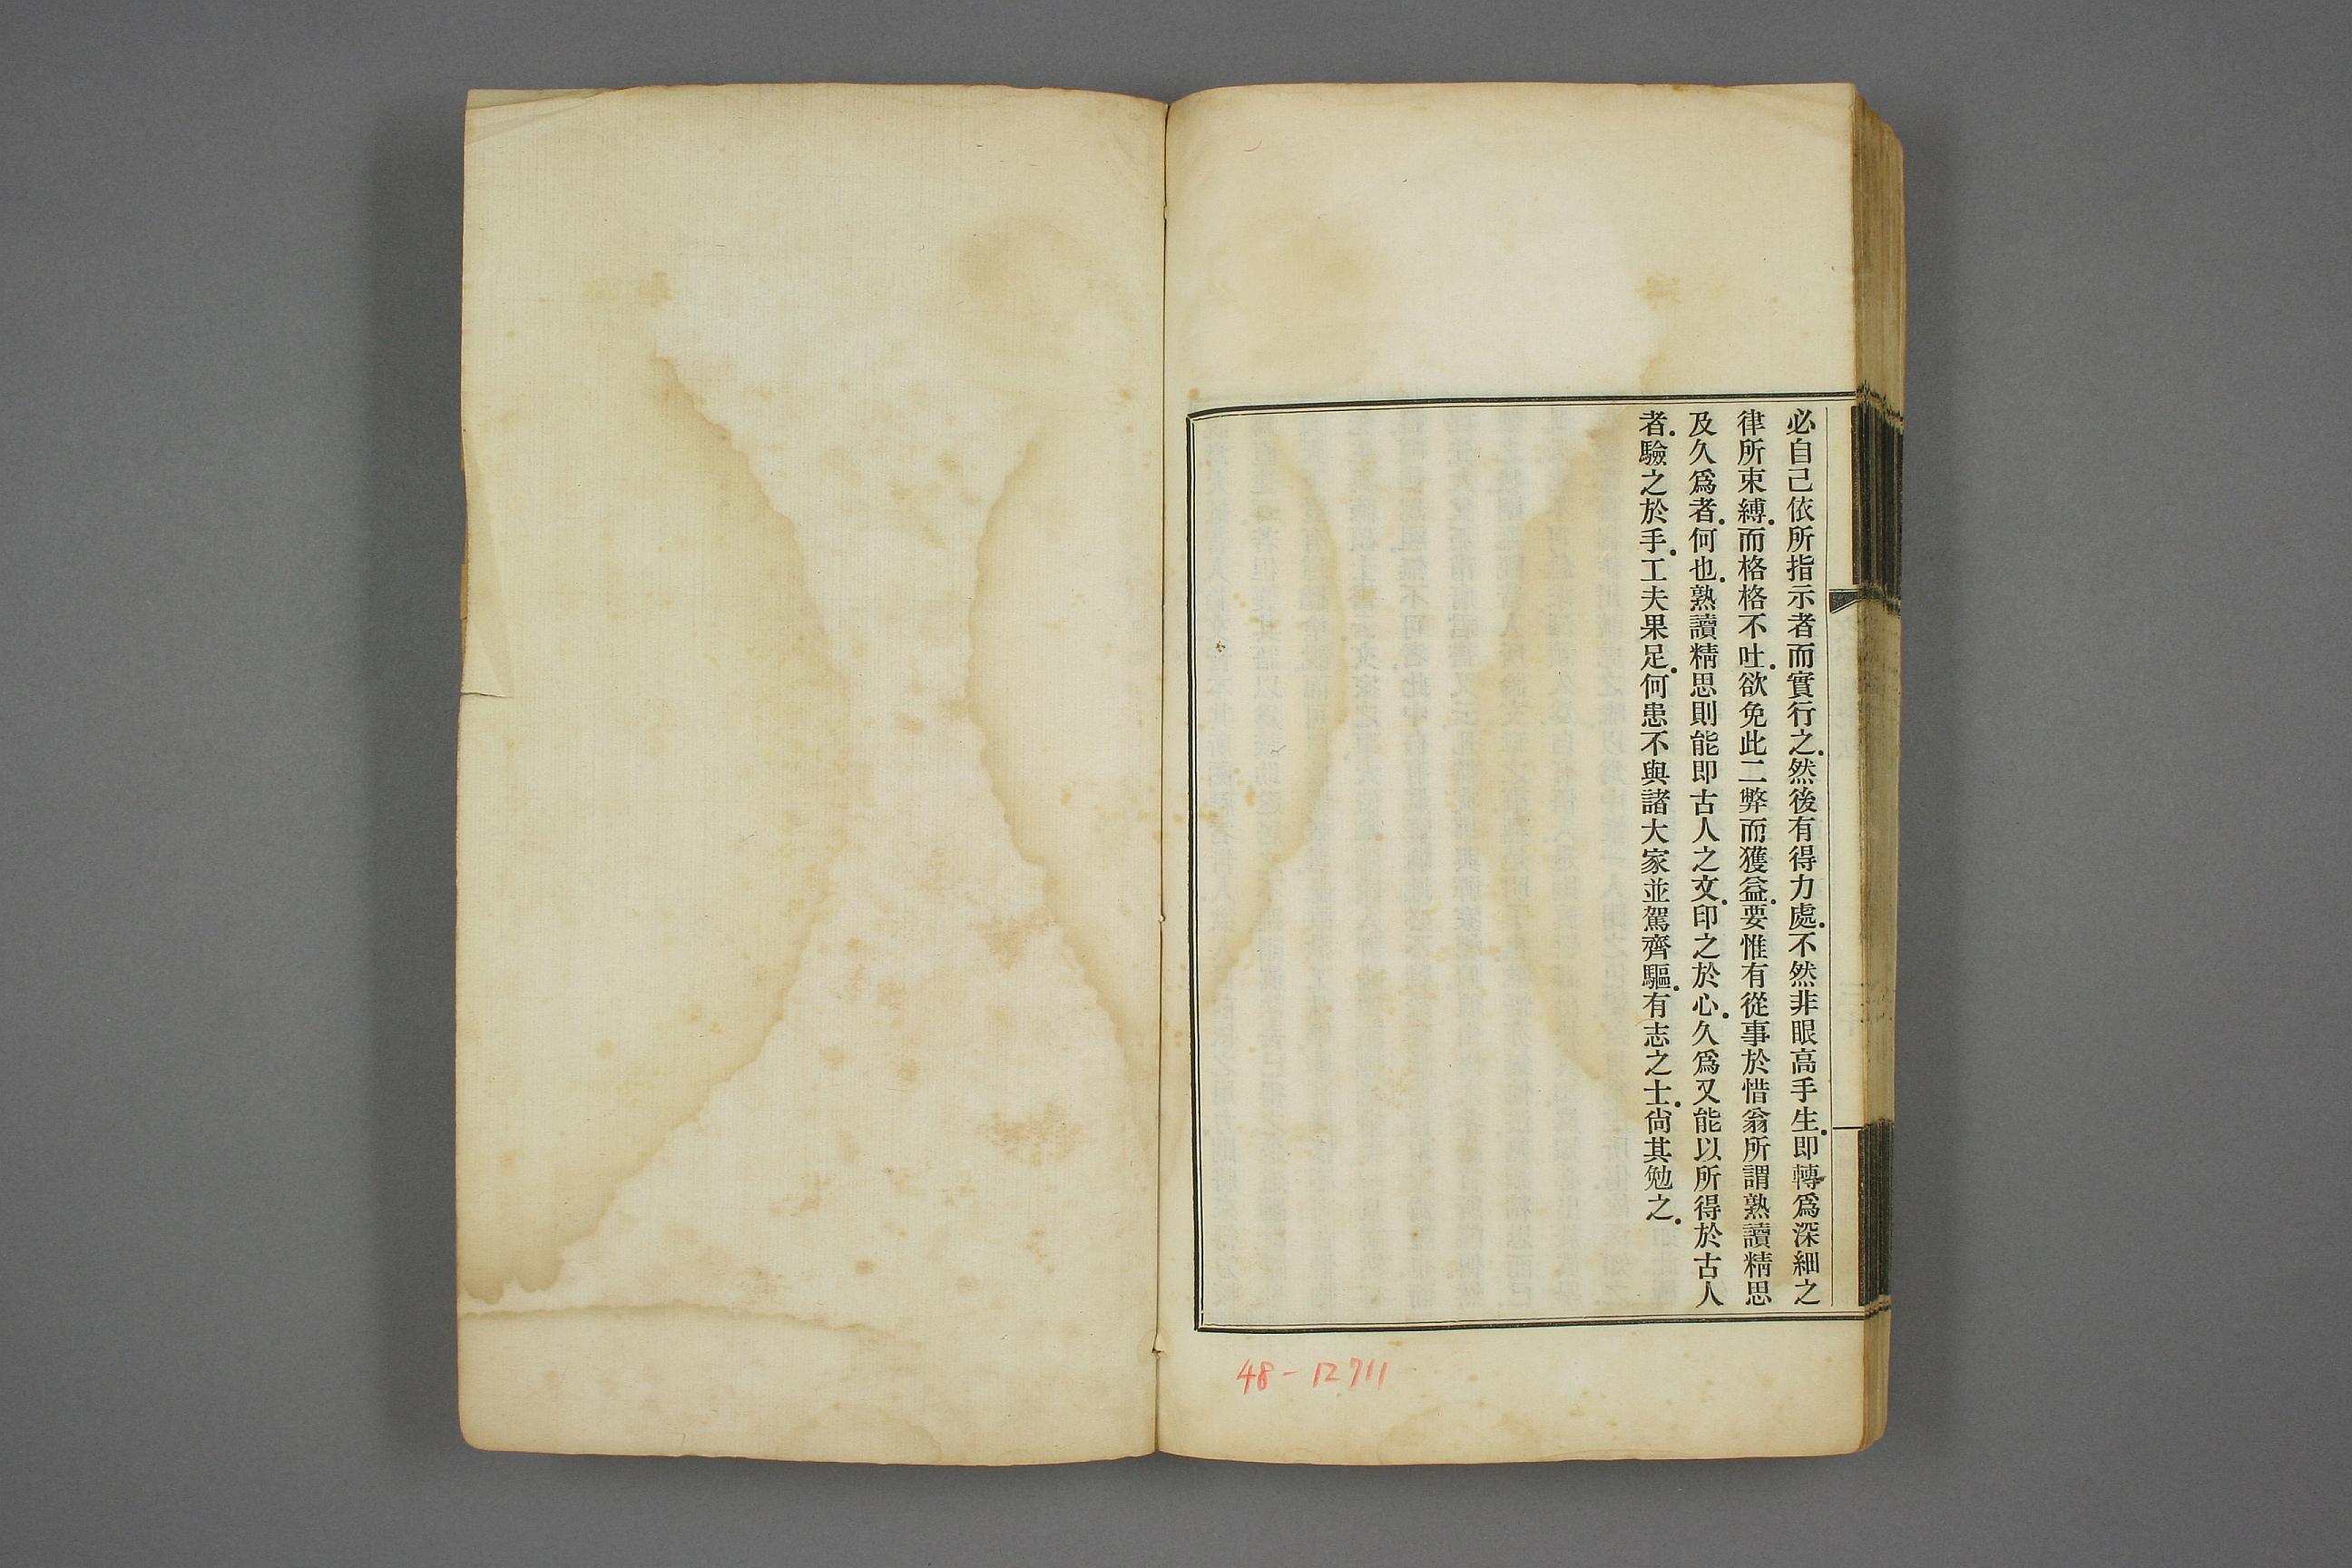 必自己依所指示者而實行之.然後有得力處.不然非眼高手生.即轉爲深細之
律所束縛.而格格不吐.欲免此二弊而獲益.要惟有從事於惜翁所謂熟讀精思
及久爲者.何也.熟讀精思則能即古人之文.印之於心.久爲又能以所得於古人
者.驗之於手.工夫果足.何患不與諸大家並駕齊驅.有志之士.尙其勉之.
48-12711